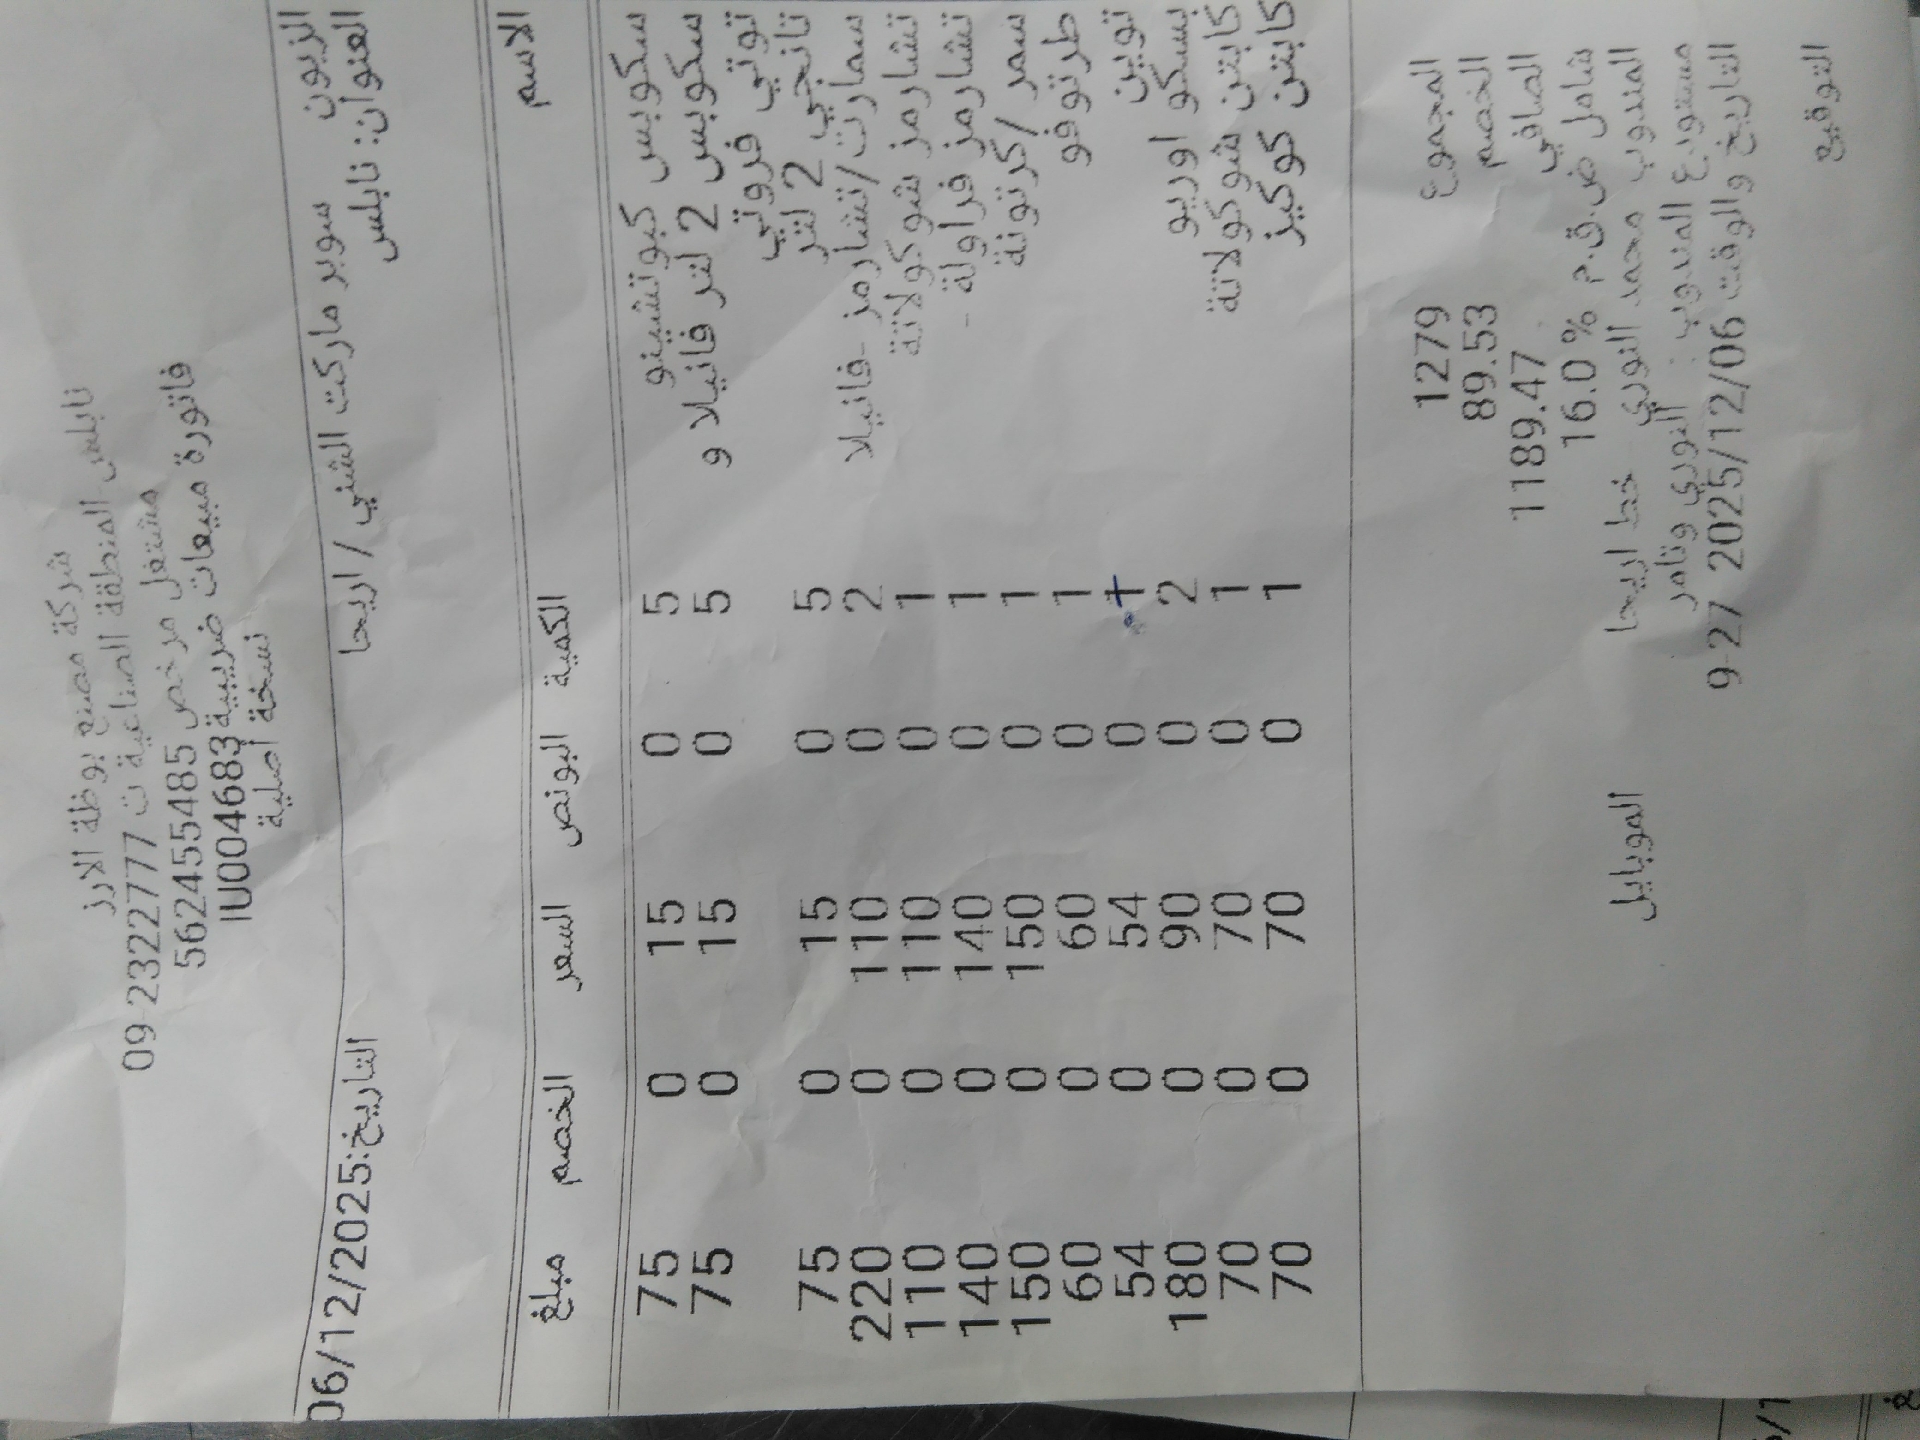 شركة مصنع بوظة الارز
نابلس-المنطقة الصناعية ت 09-2322777
مشتغل مرخص 562455485
فاتورة مبيعات ضريبية IU004683
نسخة أصلية
الزبون سوبر ماركت الشني / اريحا
العنوان: نابلس التاريخ:06/12/2025
الاسم الكمية البونص السعر الخصم مبلغ
سكوبس كبوتشينو 5 0 15 0 75
سكوبس 2 لتر فانيلا و 5 0 15 0 75
توتي فروتي
تانجي 2 لتر 5 0 15 0 75
سمارت/تشارمز -فانيلا 2 0 110 0 220
تشارمز شوكولاتة 1 0 110 0 110
تشارمز فراولة - 1 0 140 0 140
سمر /كرتونة 1 0 150 0 150
طرتوفو 1 0 60 0 60
توين 1 0 54 0 54
بسكو اوريو 2 0 90 0 180
كابتن شوكولاتة 1 0 70 0 70
كابتن كوكيز 1 0 70 0 70
المجموع 1279
الخصم 89.53
الصافي 1189.47
شامل ض.ق.م % 16.0
المندوب محمد النوري خط اريحا الموبايل
مستودع المندوب : النوري وتامر
التاريخ والوقت 2025/12/06 9-27
التوقيع